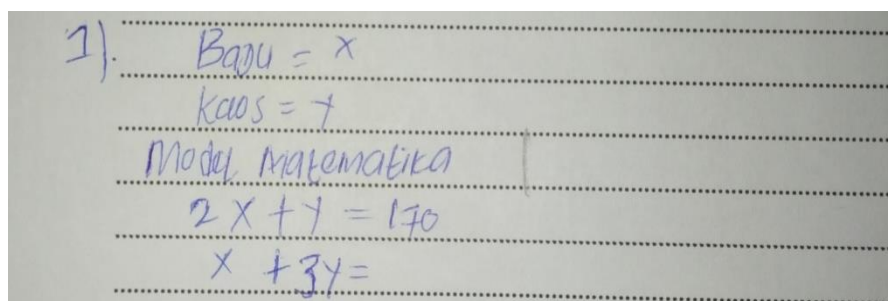 1). Baju = x
Kaos = y
Model Matematika
2x + y = 170
x + 3y =